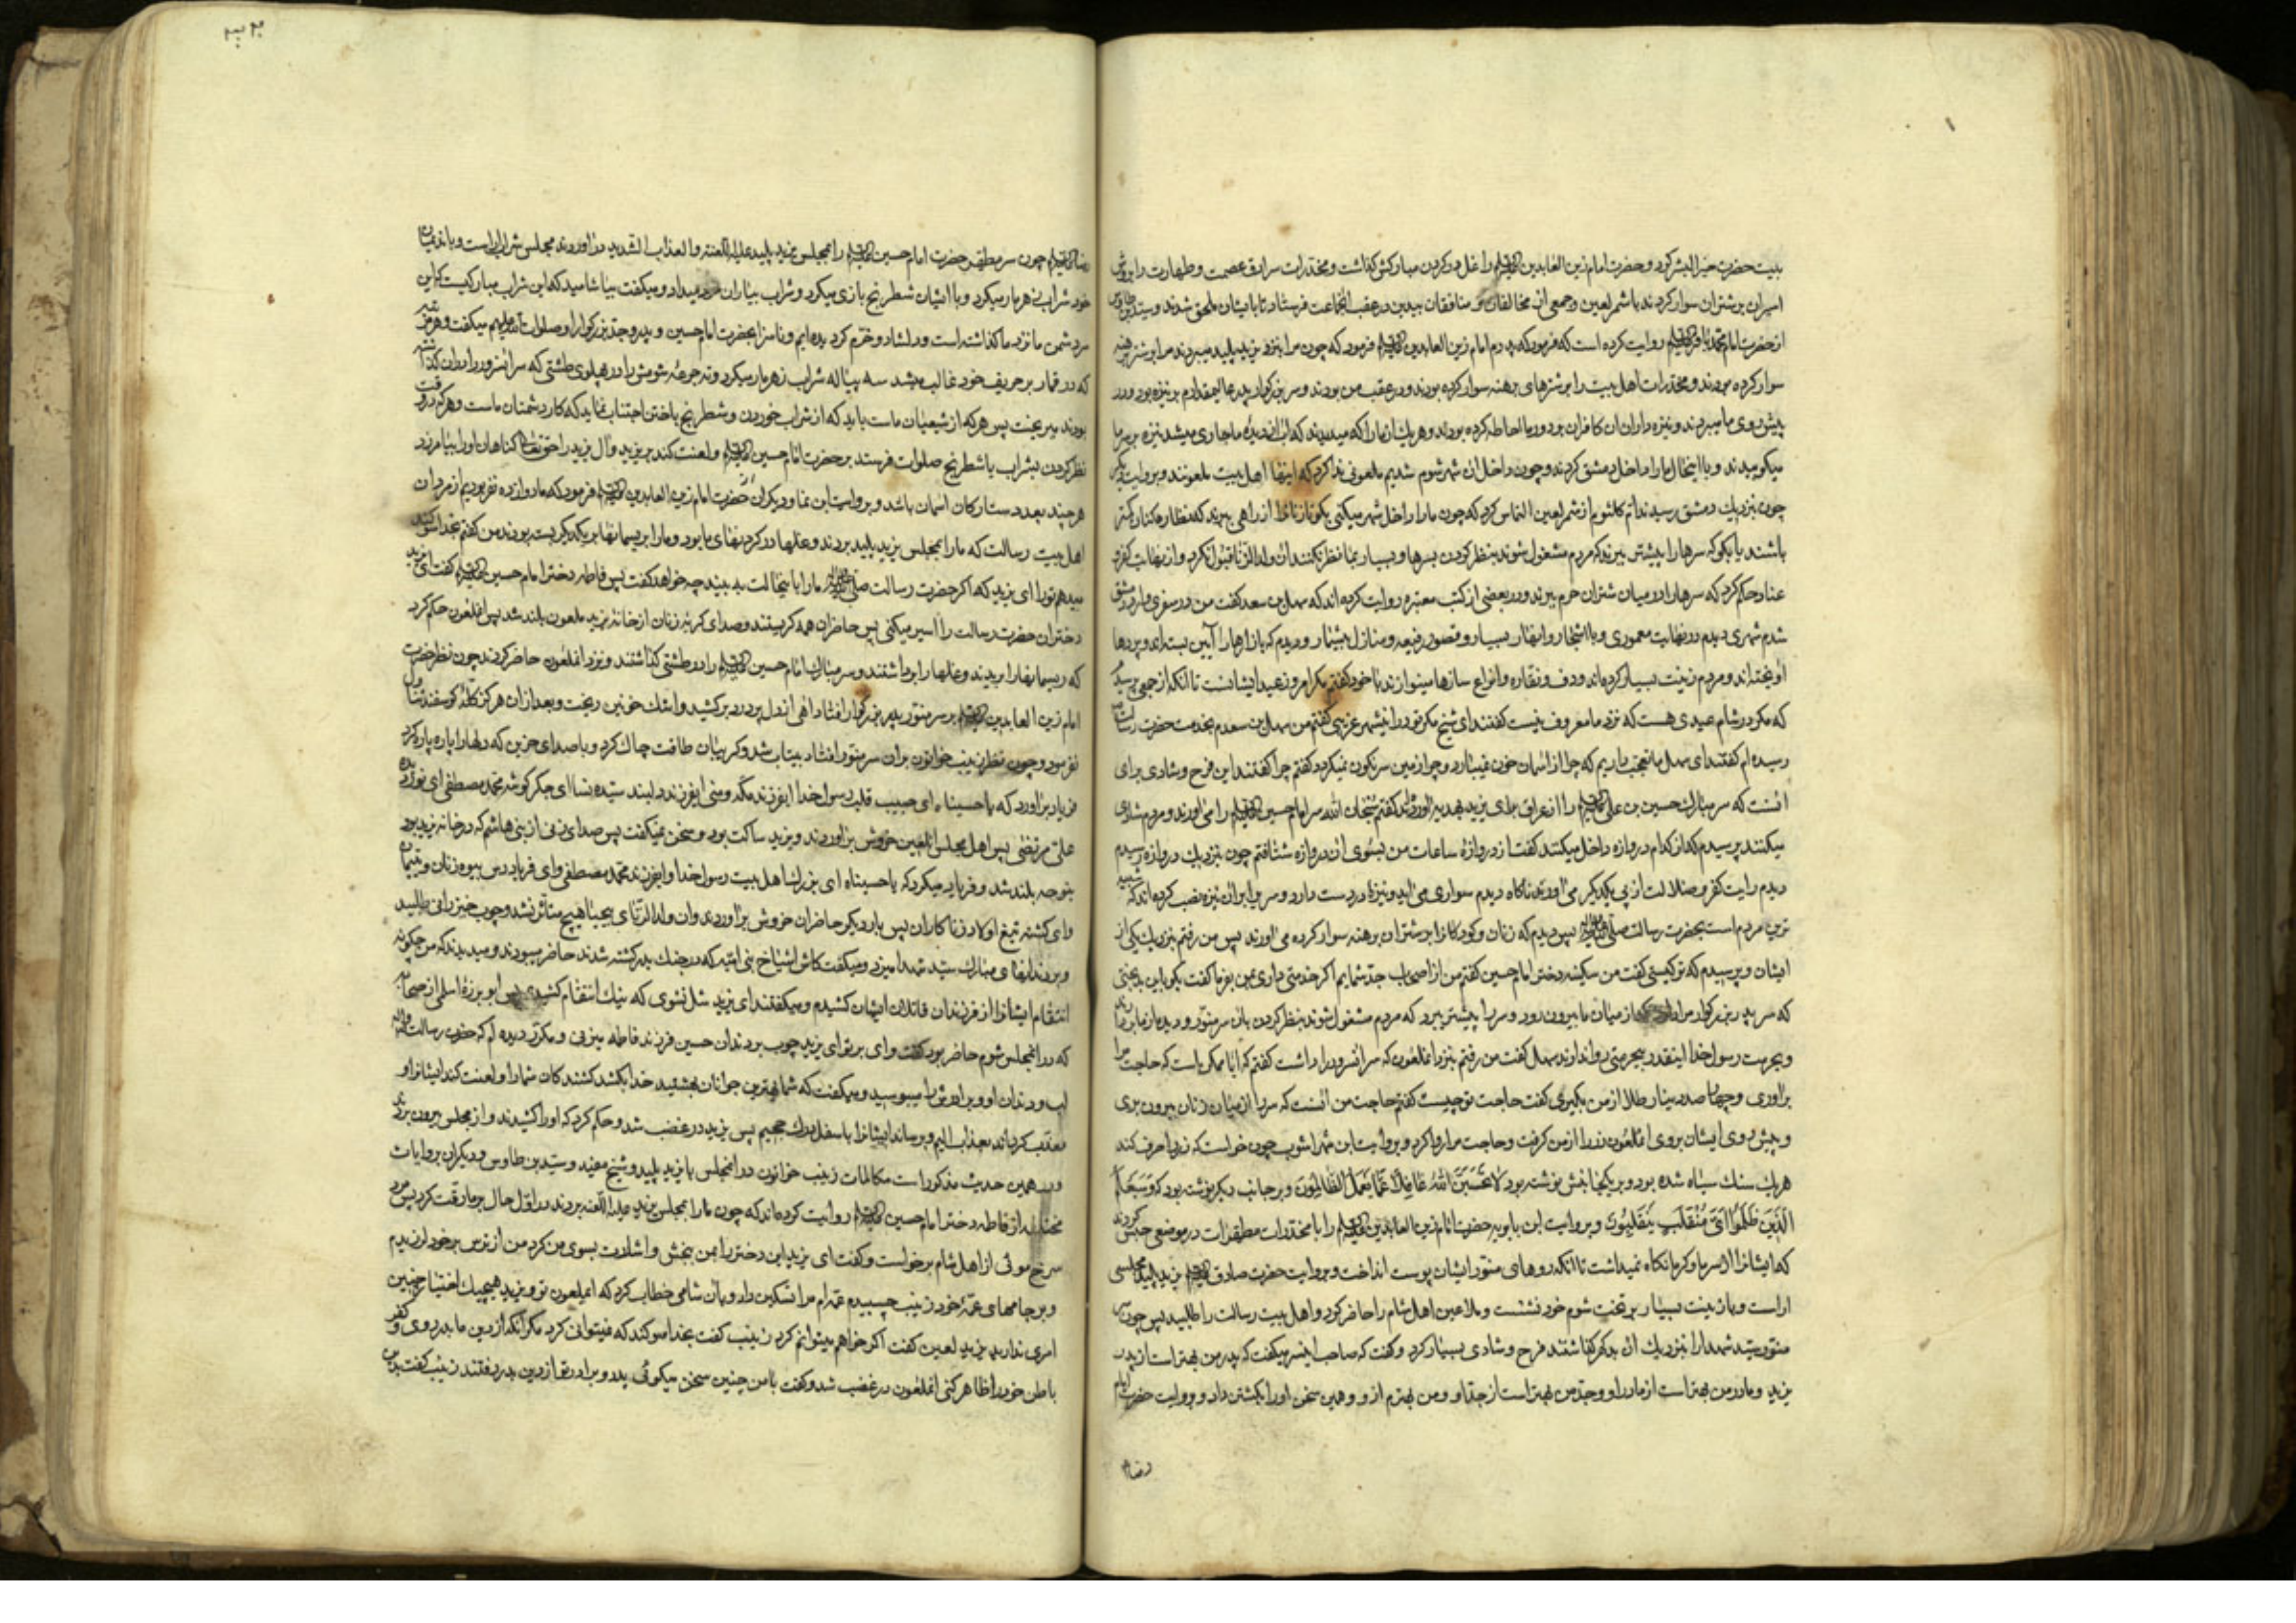 ببیت حضرت خیر البشر کرد و حضرت امام زین العابدین علیه السلام را غل در کردن مبارکش کذاشت و مخدرات سرادق عصمت و طهارت را بروش
اسیران بر شتران سوار کردند با شمر لعین و جمعی از مخالفان و منافقان بیدین در عقب انجماعت فرستاد تا بایشان ملحق شدند و سید ابن طاوس
از حضرت امام محمد باقر علیه السلام روایت کرده است که فرمود که پدرم امام زین العابدین علیه السلام فرمود که چون مرا بنزد یزید پلید میبردند مرا بر شتر برهنه
سوار کرده بودند و مخدرات اهل بیت را بر شترهای برهنه سوار کرده بودند و در عقب من بودند و سر بزرکوار پدر عالیمقدارم بر نیزه بود و در
پیش روی ما میبردند و نیزه داران ان کافران بر دور ما احاطه کرده بودند و هر یك از ما را که میدیدند که اب از دیدۀ ما جاری میشد نیزه بر سر ما
میکوبیدند و با اینحال ما را داخل دمشق کردند و چون داخل ان شهر شوم شدیم ملعونی ندا کرد که اینها اهل بیت ملعونند و بروایت دیکر
چون بنزدیك دمشق رسیدند ام کلثوم از شمر لعین التماس کرد که چون ما را داخل شهر میکنی بکو تا زنان را از راهی ببرند که نظاره کنان کمتر
باشند یا بکو که سرها را پیشتر ببرند که مردم مشغول شوند بنظر کردن بسرها و بسیار بما نظر نکنند ان ولد الزنا قبول نکرد و از نهایت کفر و
عناد حکم کرد که سرها را در میان شتران حرم ببرند و در بعضی از کتب معتبره روایت کرده اند که سهل بن سعد کفت من در سفری وارد دمشق
شدم شهری دیدم در نهایت معموری و با اشجار و انهار بسیار و قصور رفیعه و منازل بیشمار و دیدم که بازارها را آیین بسته اند و پردها
اویخته اند و مردم زینت بسیار کرده اند و دف و نقاره و انواع سازها مینوازند با خود کفتم مکر امروز عید ایشانست تا انکه از جمعی پرسیدم
که مکر در شام عیدی هست که نزد ما معروف نیست کفتند ای شیخ مکر تو در اینشهر غریبی کفتم من سهل بن سعدم بخدمت حضرت رسالت
رسیده ام کفتند ای سهل ما تعجب داریم که چرا از اسمان خون نمیبارد و چرا زمین سرنکون نمیکردد کفتم چرا کفتند این فرح و شادی برای
انست که سر مبارك حسین بن علی علیه السلام را از عراق برای یزید بهدیه اورده اند کفتم سبحان الله سر امام حسین علیه السلام را می اورند و مردم شادی
میکنند پرسیدم که از کدام دروازه داخل میکنند کفت از دروازۀ ساعات من بسوی ان دروازه شتافتم چون بنزدیك دروازه رسیدم
دیدم رایت کفر و ضلالت از پی یکدیکر می اورند ناکاه دیدم سواری می اید و نیزۀ در دست دارد و سری بر ان نیزه نصب کرده اند که شبیه
ترین مردم است بحضرت رسالت صلی الله علیه و اله پس دیدم که زنان و کودکان را بر شتران برهنه سوار کرده می اورند پس من رفتم بنزدیك یکی از
ایشان و پرسیدم که تو کیستی کفت من سکینه دختر امام حسین کفتم من از اصحاب جد شمایم اکر خدمتی داری بمن بفرما کفت بکو باین بدبختی
که سر پدر بزرکوار مرا دارد که از میان ما بیرون رود و سر را پیشتر ببرد که مردم مشغول شوند بنظر کردن بان سر منور و دیده از ما بردارند
و بحرمت رسول خدا اینقدر بیحرمتی روا ندارند سهل کفت من رفتم بنزد انملعون که سر انسرور را داشت کفتم که ایا ممکن است که حاجت مرا
براوری و چهار صد دینار طلا از من بکیری کفت حاجت تو چیست کفتم حاجت من انست که سر را از میان زنان بیرون بری
و پیش روی ایشان بروی انملعون زر را از من کرفت و حاجت مرا روا کرد و بروایت ابن شهراشوب چون خواست که زر را صرف کند
هر یك سنك سیاه شده بود و بر یکجانبش نوشته بود لا تحسبن الله غافلا عما یعمل الظالمون و بر جانب دیکر نوشته بود که و سیعلم
الذین ظلموا ای منقلب ینقلبون و بروایت ابن بابویه حضرت امام زین العابدین علیه السلام را با مخدرات مطهرات در موضعی حبس کردند
که ایشانرا از سرما و کرما نکاه نمیداشت تا انکه روهای منور ایشان پوست انداخت و بروایت حضرت صادق علیه السلام یزید پلید مجلسی
اراست و با زینت بسیار بر تخت شوم خود نشست و ملاعین اهل شام را حاضر کرد و اهل بیت رسالت را طلبید پس چون سر
منور سید شهدا را بنزدیك ان بدکهر کذاشتند فرح و شادی بسیار کرد و کفت که صاحب اینسر میکفت که پدر من بهتر است از پدر
یزید و مادر من بهتر است از مادر او و جد من بهتر است از جد او و من بهترم از او و همین سخن او را بکشتن داد و بروایت حضرت امام
رضا
رضا علیه السلام چون سر مطهر حضرت امام حسین علیه السلام را بمجلس یزید پلید علیه اللعنه و العذاب الشدید در اوردند مجلس شراب اراست و با ندیمان
خود شراب زهر مار میکرد و با ایشان شطرنج بازی میکرد و شراب بیاران خود میداد و میکفت بیاشامید که این شراب مبارکیست که این سر
سر دشمن ما نزد ما کذاشته است و دلشاد و خرم کردیده ایم و ناسزا بحضرت امام حسین و پدر و جد بزرکوار او صلوات الله علیهم میکفت و هر مرتبه
که در قمار بر حریف خود غالب میشد سه پیاله شراب زهر مار میکرد و ته جرعۀ شومش را در پهلوی طشتی که سر انسرور را در ان کذاشته
بودند میریخت پس هر که از شیعیان ماست باید که از شراب خوردن و شطرنج باختن اجتناب نماید که کار دشمنان ماست و هر که در وقت
نظر کردن بشراب یا شطرنج صلوات فرستد بر حضرت امام حسین علیه السلام و لعنت کند بر یزید و آل یزید را حق تعالی کناهان او را بیامرزد
هر چند بعدد ستارکان اسمان باشد و بروایت ابن نما و دیکران حضرت امام زین العابدین علیه السلام فرمود که ما دوازده نفر بودیم از مردان
اهل بیت رسالت که ما را بمجلس یزید پلید بردند و غلها در کردنهای ما بود و ما را بریسمانها بر یکدیکر بسته بودند من کفتم بخدا سوکند
میدهم تو را ای یزید که اکر حضرت رسالت صلی الله علیه و اله ما را باینحالت به بیند چه خواهد کفت پس فاطمه دختر امام حسین علیه السلام کفت ای یزید
دختران حضرت رسالت را اسیر میکنی پس حاضران همه کریستند و صدای کریه زنان از خانۀ یزید ملعون بلند شد پس انملعون حکم کرد
که ریسمانها را بریدند و غلها را برداشتند و سر مبارك امام حسین علیه السلام را در طشتی کذاشتند و نزد انملعون حاضر کردند چون نظر حضرت
امام زین العابدین علیه السلام بر سر منور پدر بزرکوار افتاد اهی از دل پر درد بر کشید و اشك خونین ریخت و بعد از ان هرکز کله کوسفند تناول
نفرمود و چون نظر زینب خواتون بران سر منور افتاد بیتاب شد و کریبان طاقت چاك کرد و با صدای حزین که دلها را پاره پاره کرد
فریاد براورد که یا حسیناه ای حبیب قلب رسول خدا ای فرزند مکه و منی ای فرزند دلبند سیده نسا ای جکر کوشه محمد مصطفی ای نور دیده
علی مرتضی پس اهل مجلس انلعین خروش براوردند و یزید ساکت بود و سخن نمیکفت پس صدای زنی از بنی هاشم که در خانه یزید بود
بنوحه بلند شد و فریاد میکرد که یا حسیناه ای بزرك اهل بیت رسول خدا و ای فرزند محمد مصطفی وای فریادرس بیوه زنان و یتیمان
وای کشته تیغ اولاد زنا کاران پس بار دیکر حاضران خروش براوردند و ان ولد الزنای بیحیا هیچ متأثر نشد و چوب خیزرانی طلبید
و بر دندانهای مبارك سید شهدا میزد و میکفت کاش اشیاخ بنی امیه که در جنك بدر کشته شدند حاضر میبودند و میدیدند که من چکونه
انتقام ایشانرا از فرزندان قاتلان ایشان کشیدم و میکفتند ای یزید شل نشوی که نیك انتقام کشیدی پس ابو برزۀ اسلمی از صحابه
که در انمجلس شوم حاضر بود کفت وای بر تو ای یزید چوب بر دندان حسین فرزند فاطمه میزنی و مکرر دیده ام که حضرت رسالت صلی الله علیه و اله
لب و دندان او و برادرش را میبوسید و میکفت که شما بهترین جوانان بهشتید خدا بکشد کشندکان شما را و لعنت کند ایشانرا و
معذب کرداند بعذاب الیم و برساند ایشانرا باسفل درك جحیم پس یزید در غضب شد و حکم کرد که او را کشیدند و از مجلس بیرون بردند
و در همین حدیث مذکور است مکالمات زینب خواتون در انمجلس با یزید پلید و شیخ مفید و سید بن طاوس و دیکران بروایات
مختلفه از فاطمه دختر امام حسین علیه السلام روایت کرده اند که چون ما را بمجلس یزید علیه اللعنه بردند در اول حال بر ما رقت کرد پس مرد
سرخ موئی از اهل شام بر خواست و کفت ای یزید این دختر را بمن ببخش و اشارت بسوی من کرد من از ترس بر خود لرزیدم
و بر جامهای عمۀ خود زینب چسبیدم عمه ام مرا تسکین داد و بان شامی خطاب کرد که ایملعون تو و یزید هیچیك اختیار چنین
امری ندارید یزید لعین کفت اکر خواهم میتوانم کرد زینب کفت بخدا سوکند که نمیتوانی کرد مکر انکه از دین ما بدر روی و کفر
باطن خود را ظاهر کنی انملعون در غضب شد و کفت با من چنین سخن میکوئی پدر و برادر تو از دین بدر رفتند زینب کفت بدین